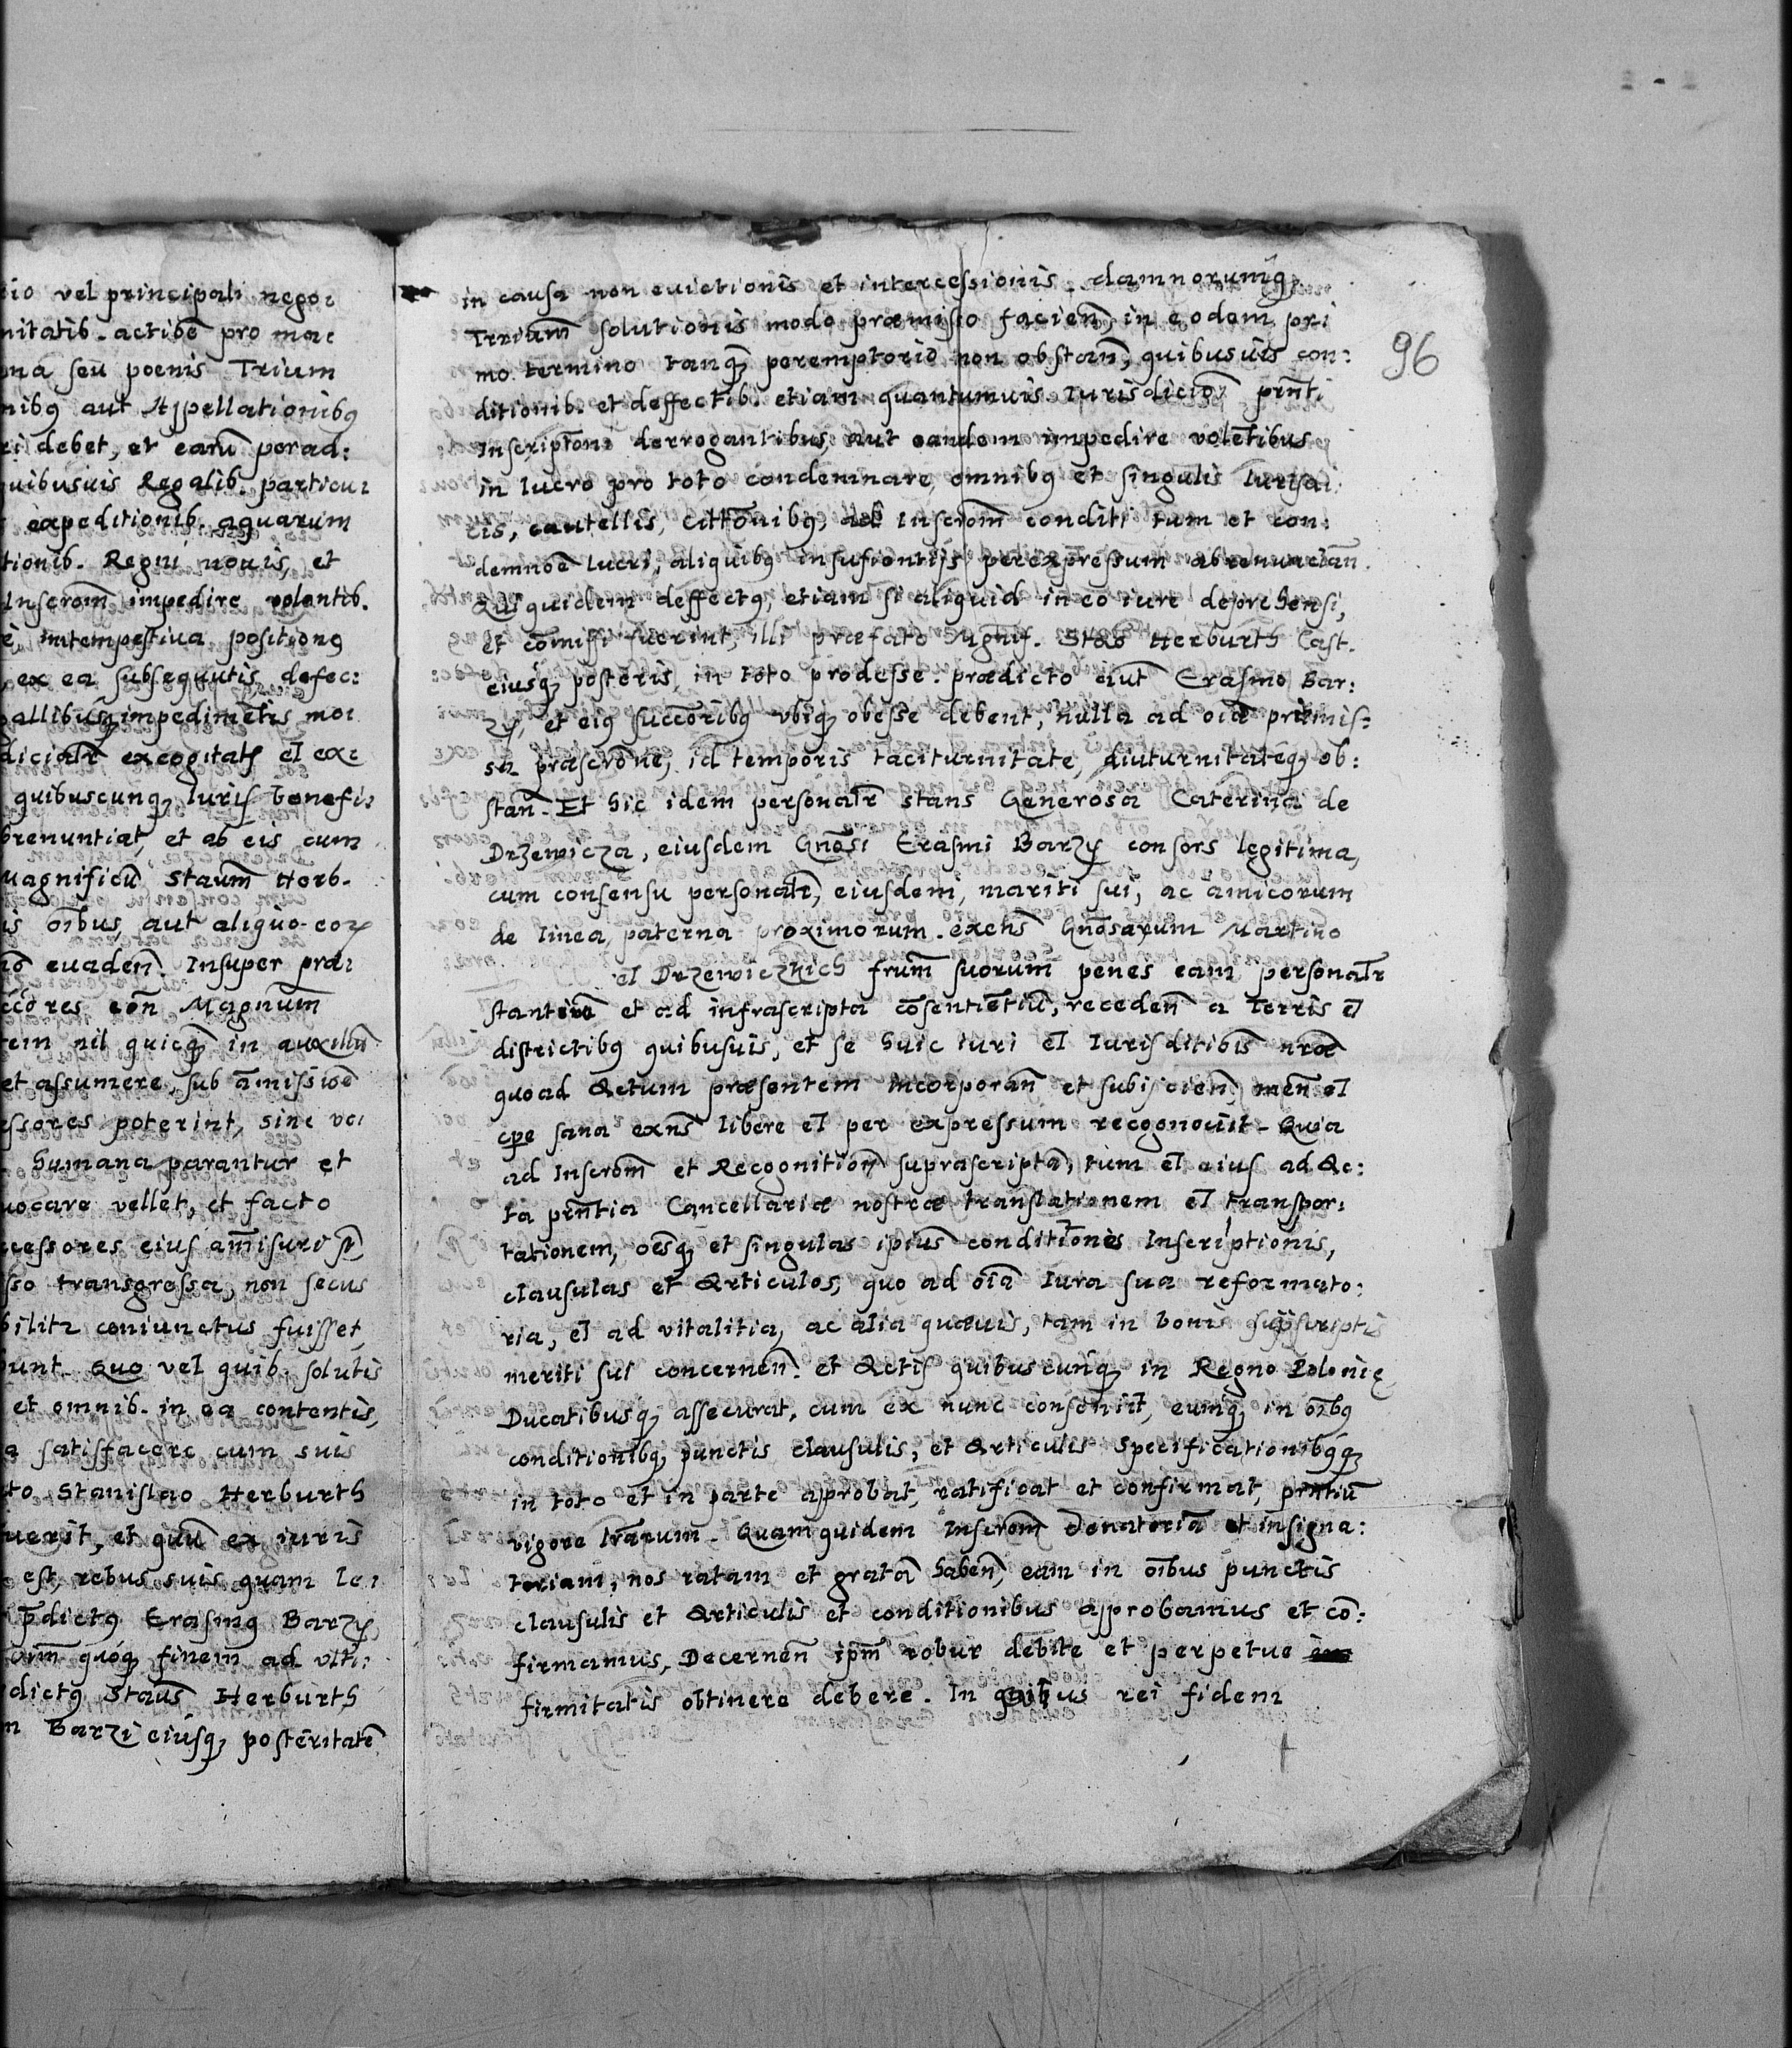 tio vel principali nego:
nitatib. actibō pro mac
ona seu poenis Trium
nibꝯ aut Appellationibꝯ
ri debet, et earū porad:
quibusuis Regalib. particu:
expeditionib. aquarum
tionib. Regni nouis, et
Inscrom̄ impedire volentib.
intempestiua positionꝯ
ex ea subsequutis defec:
pallibusqꝫ impedimētis mo:
diciałr excogitatꝭ et ex:
quibuscunqꝫ Iuris benefi:
brenuntiat, et ab eis cum
Magnificū Staum̄ Herb.
is oībus aut aliquo eoꝝ
euaden̄. Insuper præ:
ccōres eōn Magnum̄
tem nil quicqꝫ in auxiliū
et assumere, sub amissiōe
essores poterint, sine vo:
humana parantur et
uocare vellet, et facto
ccessores eius am̄isuri
sso transgressa, non secus
bilitr coniunctus fuisset
bunt. Quo vel quib. solutis
et omnib. in ea contentis,
a satisfacere cum suis
to Stanislao Herburth
uerit, et quū ex iuris
est, rebus suis quam le:
p̄dictꝯ Erasmꝯ Barzÿ
quoqꝫ finem ad vlti:
dictꝯ Staūs Herburth
Barzi eiusqꝫ posteritatē
96
in causa non euictionis et intercessionis damnorumqꝫ
Terriarum̄ solutionis modo præmisso facien̄, in eodem pri
mo termino tanqꝫ peremptorio non obstan̄, quibusuis con:
ditionib. et deffectib. etiam quantumuis Iurisdicioī prn̄ti
Inscriptōni derrogantibus, aut eandem impedire volētibus
in lucro pro toto condemnare, omnibꝯ et singulis Iurisdi
cis, cautellis, cittōnibꝯ, ad Inscrom̄ conditi tum et con:
demnōe lucri, aliquibꝯ insufientijs per expressum abrenunctan̄.
Qui quidem deffectꝯ, etiam si aliquid in eo iure deprehensi,
et cōmissi fuerint, illi præfato Mgnif. Stao Herburth Cast.
eiusqꝫ posteris, in toto prodesse. prædicto aut̄ Erasmo Bar:
zÿ, et eiꝯ succōribꝯ vbiqꝫ obesse debent, nulla ad oīā præmis:
sa præscrōne, id temporis taciturnitate, diuturnitateqꝫ ob:
stan̄. Et hic idem personałr stans Generosa Caterina de
Drzewicza, eiusdem Gnōsi Erasmi Barzÿ consors legitima,
cum consensu personałr, eiusdem, mariti sui, ac amicorum
de linea paterna proximorum. exēns Gnōsarum Martino
et Drzewiczkich frum̄ suorum penes eam personałr
stantium et ad infrascripta cōsentiētiū, receden̄ a Terris et
districtibꝯ quibusuis, et se huic iuri et Iurisditibīs nrōæ
quo ad Actum præsentem incorporan̄ et subijcien̄, men̄ et
cpe sana exn̄s libere et per expressum recognouit. Quia
ad Inscrom̄ et Recognition̄ suprascriptā, tum et eius ad Ac:
ta prn̄tia Cancellariæ nostræ translationem et transpor:
tationem, oēsqꝫ et singulas ipius conditiōnes Inscriptionis,
clausulas et Articulos, quo ad oīa Iura sua reformato:
ria, et ad vitalitia, ac alia quæuis, tam in bonis supscriptis
meriti sui concernen̄. et Actis quibuscunqꝫ in Regno Polonię
Ducatibusqꝫ assecurat, cum ex nunc consentit, eumqꝫ in oībꝯ
conditionibꝯ, punctis clausulis, et Articulis Specificationibꝯqꝫ
in toto et in parte approbat, ratificat et confirmat, prn̄tiū
vigore lrārum. Quam quidem Inscrom̄ donatoriā et insigna:
toriam, nos ratam et gratā haben̄, eam in oībus punctis
clausulis et Articulis et conditionibus approbamus et cō:
firmamus, Decernen̄ ipm̄ robur debite et perpetue
firmitatis obtinere debere. In quibus rei fidem